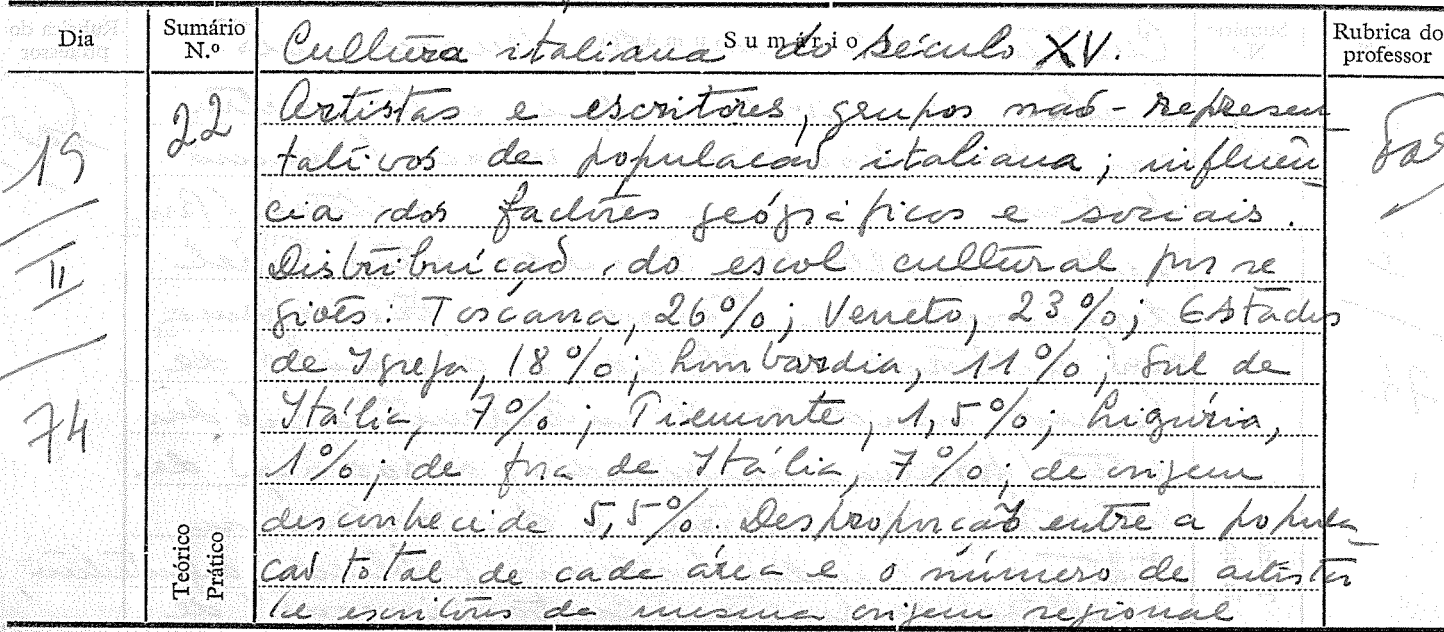 Dia
Sumário N.º
Sumário
Rubrica do professor
Cultura italiana do século XV.
19
II
74
22
Artistas e escritores, grupos não-represen
tativos da população italiana; influên
cia dos factores geográficos e sociais.
Distribuição do escol cultural por re
giões: Toscana, 26%; Veneto, 23%; Estados
da Igreja, 18%; Lombardia, 11%; Sul de
Itália, 7%; Piemonte, 1,5%; Ligúria,
1%; de fora de Itália, 7%; de origem
desconhecida 5,5%. Desproporção entre a popula
ção total de cada área e o número de artistas
e escritores da mesma origem regional
Teórico
Prático